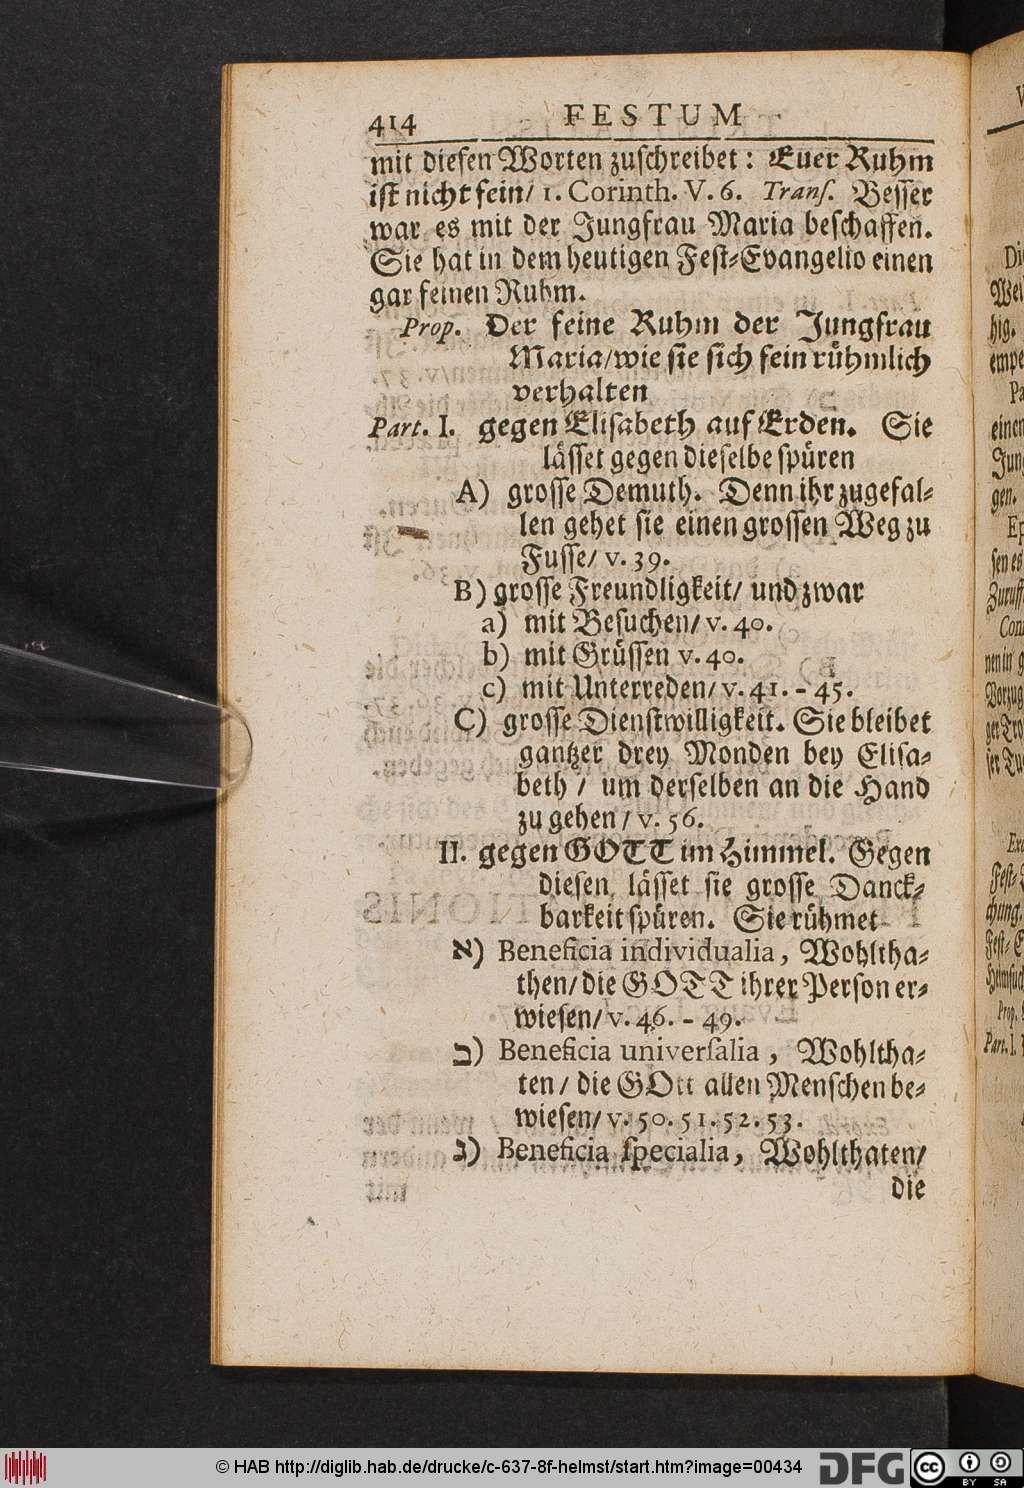 414 FESTUM
mit diesen Worten zuschreibet: Euer Ruhm
ist nicht fein/ 1. Corinth. V. 6. Transſ. Besser
war es mit der Jungfrau Maria beschaffen.
Sie hat in dem heutigen Fest-Evangelio einen
gar feinen Ruhm.
Prop. Der feine Ruhm der Jungfrau
Maria/ wie sie sich fein rühmlich
verhalten
Part. I. gegen Elisabeth auf Erden. Sie
lässet gegen dieselbe spüren
A) grosse Demuth. Denn ihr zugefal-
len gehet sie einen grossen Weg zu
Fusse/ v. 39.
B) grosse Freundligkeit/ und zwar
a) mit Besuchen/ v. 40.
b) mit Grüssen v. 40.
c) mit Unterreden/ v. 41. - 45.
C) grosse Dienstwilligkeit. Sie bleibet
gantzer drey Monden bey Elisa-
beth / um derselben an die Hand
zu gehen / v. 56.
II. gegen GOTT im Himmel. Gegen
diesen lässet sie grosse Danck-
barkeit spüren. Sie rühmet
א) Beneficia individualia, Wohltha-
then/ die GOTT ihrer Person er-
wiesen/ v. 46. - 49.
ב) Beneficia universalia, Wohltha-
ten / die GOtt allen Menschen be-
wiesen/ v. 50. 51. 52. 53.
ג) Beneficia specialia, Wohlthaten/
die
© HAB http://diglib.hab.de/drucke/c-637-8f-helmst/start.htm?image=00434
DFG
cc
BY SA